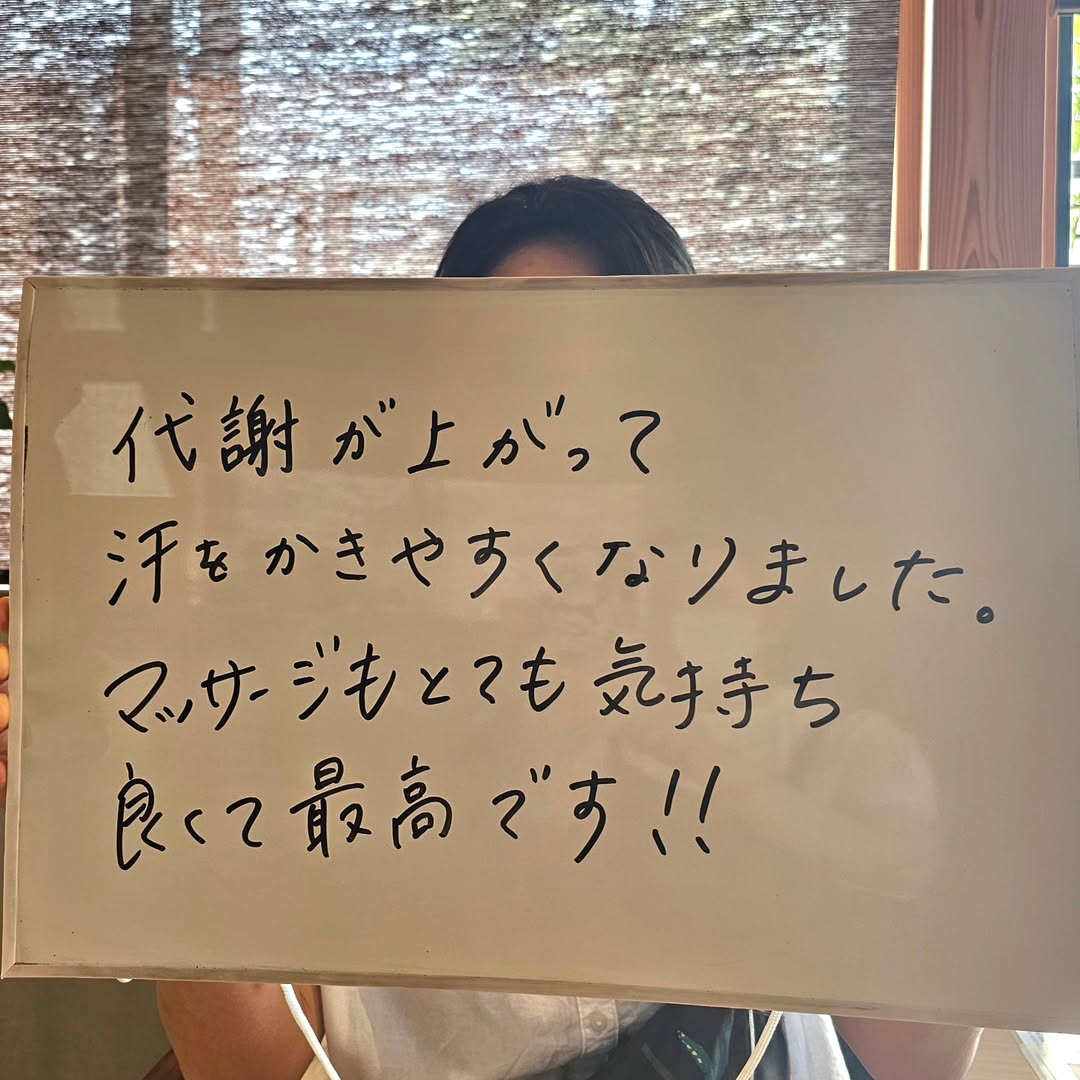 代謝が上がって
汗をかきやすくなりました。
マッサージもとても気持ち
良くて最高です!!